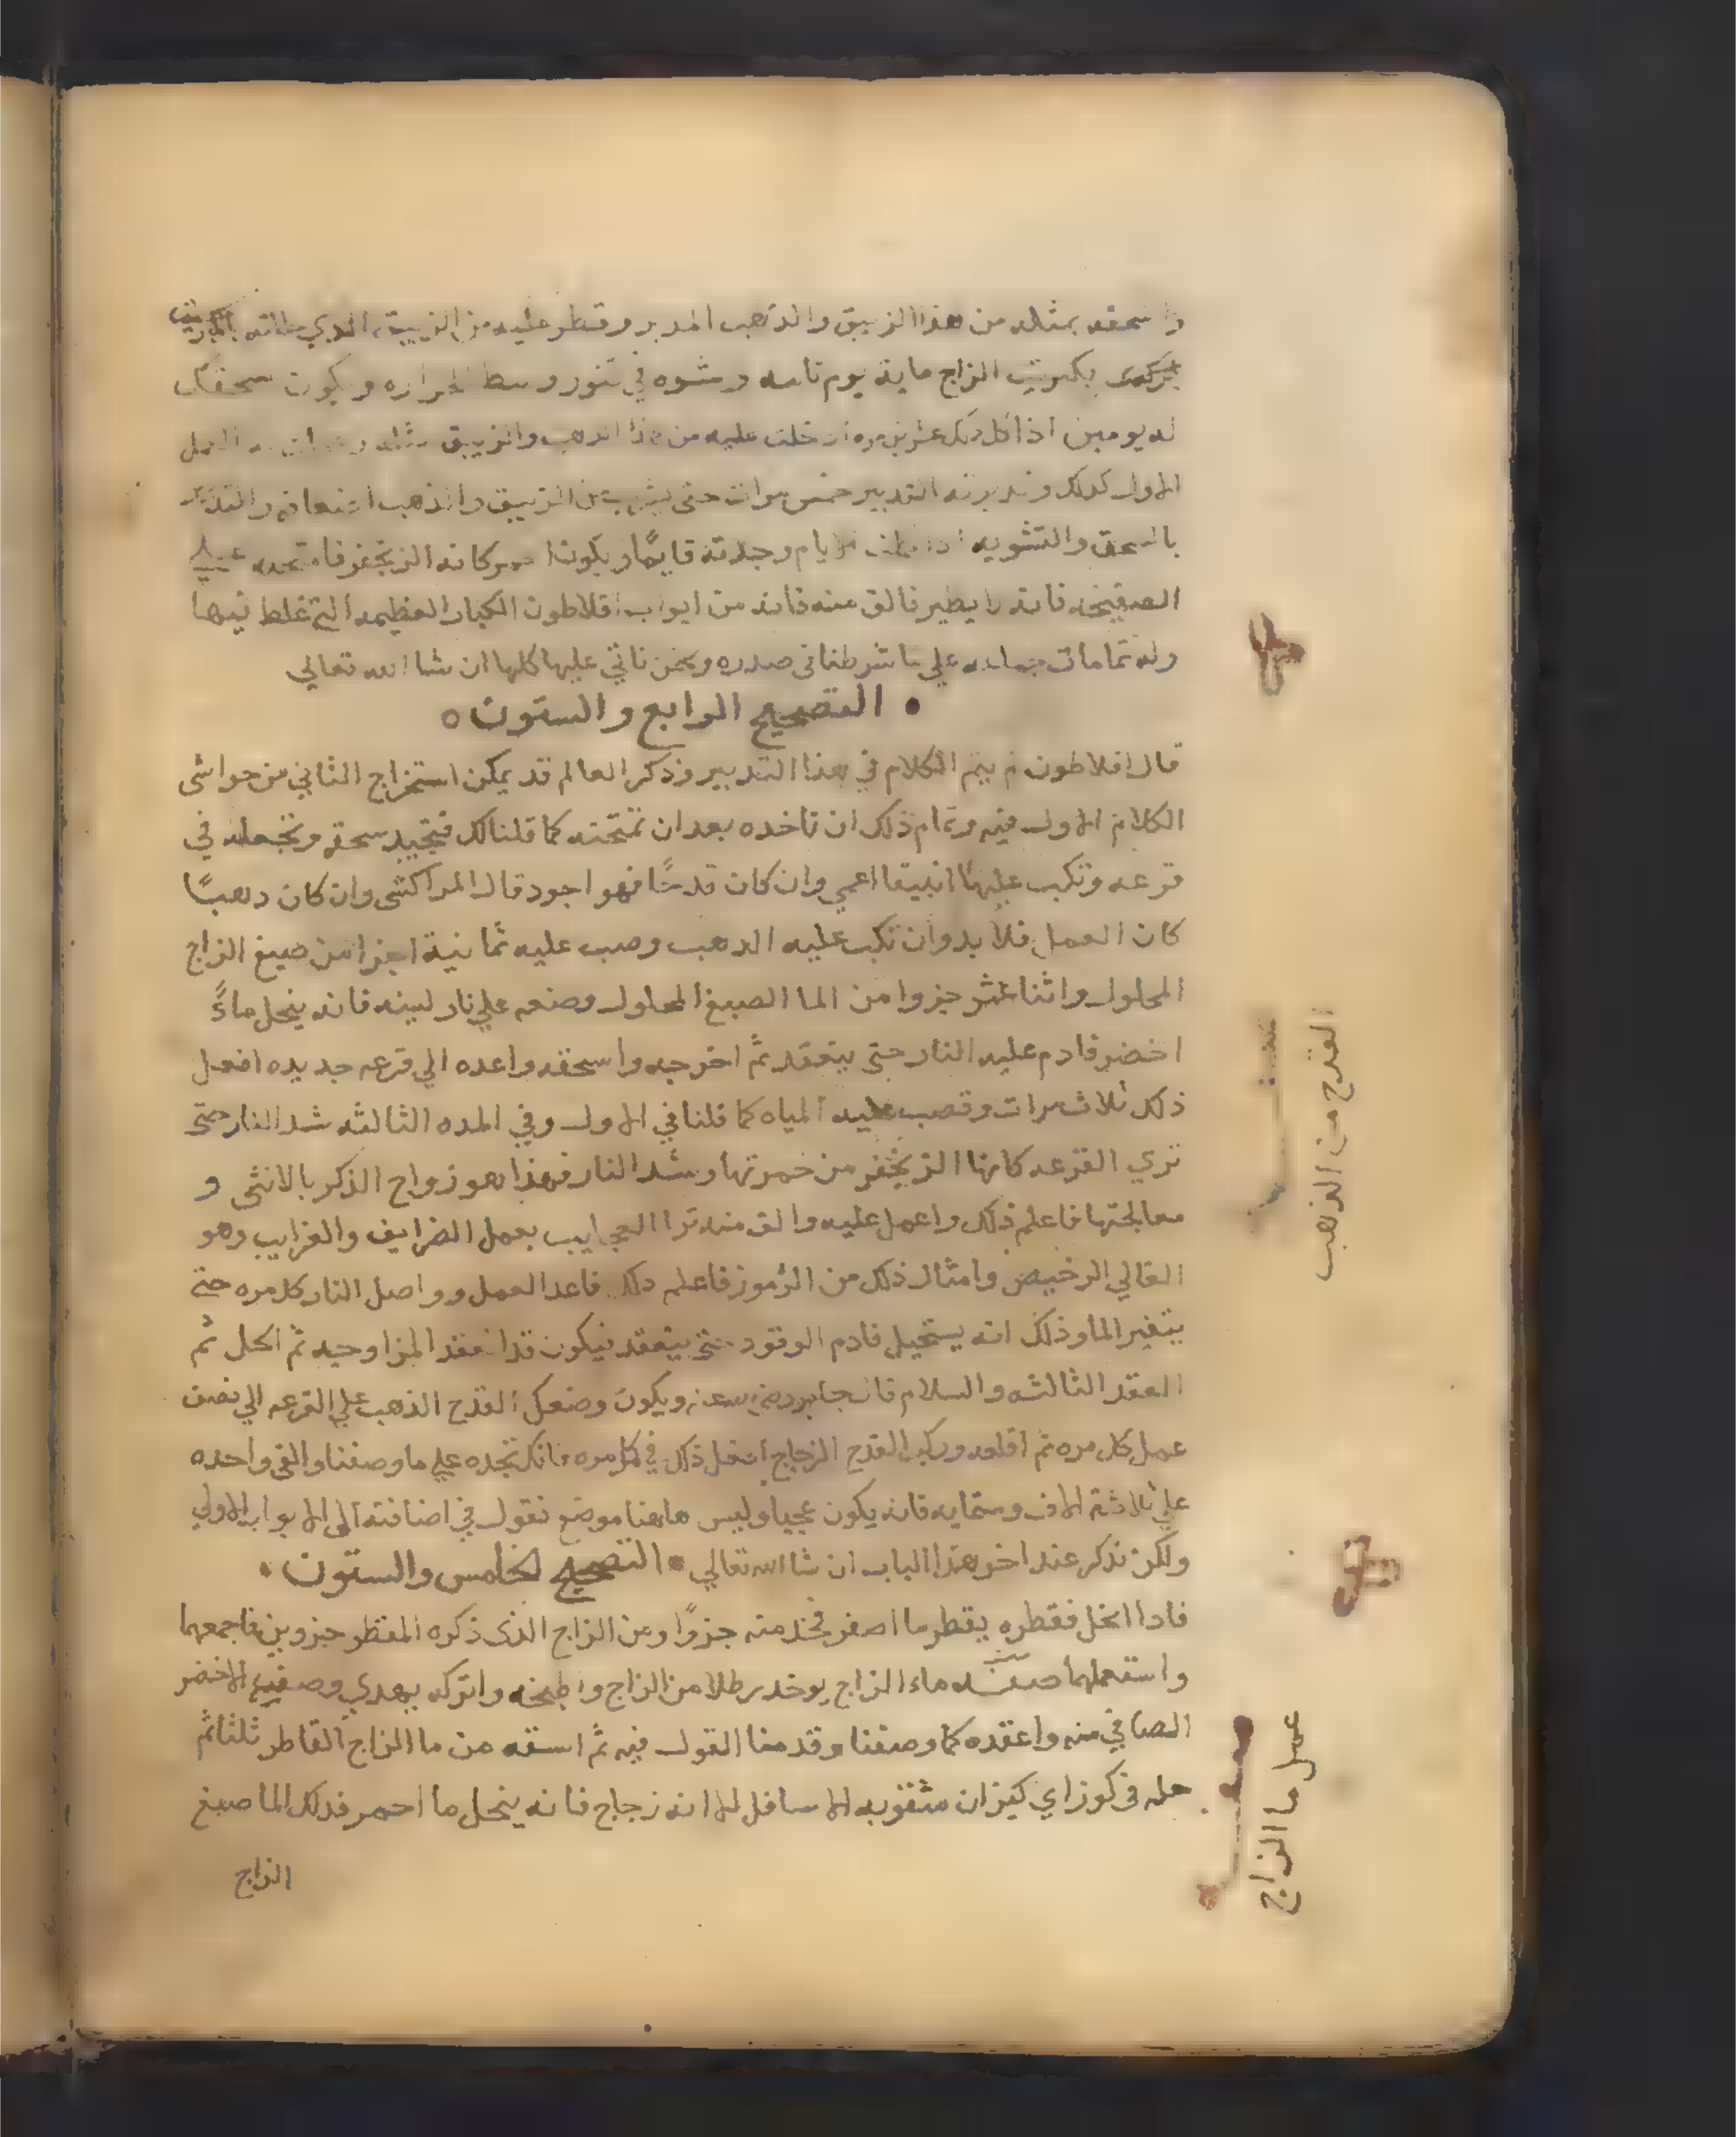 واسحقه بمثله من هذا الزيبق والذهب المدبر وقطر عليه من الزيبق الذي
بكبريت الزاج ماية يوم تامه وشوه في تنور وسط الحراره ويكون سحقك
له يومين اذا كل ذلك عشرين مره ادخلت عليه من هذا الدهب والزيبق مثله العمل
الاول كدلك وتدبرته التدبير خمس مرات حتى يشرب من الزيبق والذهب اضعافه
بالسحق والتشويه الايام وجدته قايمًا ويكون احمر كانه الزنجفر فامتحنه علي
الصفيحه فانه لا يطير فالق منه فانه من ابواب افلاطون الكبار العظيمه التي غلط فيها
وله تمامات جماعه علي ما شرطنا في صدره ونحن ناتي عليها كلها ان شا الله تعالي
• التصحيح الرابع والستون ٥
قال افلاطون لم يتم الكلام في هذا التدبير وذكر العالم قد يمكن استخراج الثاني من حواشى
الكلام الاول فيه وتمام ذلك ان تاخده بعد ان تمتحنه كما قلنا لك فتجيد سحقه وتجعله في
قرعه وتكب عليها انبيقا اعمي وان كان قدحًا فهو اجود قال المراكشى وان كان دهبًا
كان العمل فلا بد وان تكب عليه الدهب وصب عليه ثمانية اجزا من صبغ الزاج
المحلول واثنا عشر جزوا من الما الصبغ المحلول وضعه علي نار لينه فانه ينحل ماءً
اخضر فادم عليه النار حتى ينعقد ثم اخرجه واسحقه واعده الي قرعه جديده افعل
ذلك ثلاث مرات وتصب عليه المياه كما قلنا في الاول وفي المده الثالثه شد النار حتى
تري القرعه كانها الزنجفر من حمرتها وشد النار فهذا هو زواج الذكر بالانثى و
معالجتها فاعلم ذلك واعمل عليه والق منه ترا العجايب بعمل الضرايف والغرايب وهو
الغالي الرخيص وامثال ذلك من الرموز فاعلم دلك فاعد العمل وواصل النار كل مره حتى
يتغير الما وذلك انه يستحيل فادم الوقود حتى ينعقد فيكون قد انعقد المزاوجيه ثم الحل ثم
العقد الثالثه والسلام قال جابر رضي الله عنه ويكون وضعك القدح الذهب علي القرعه الي نصف
عمل كل مره ثم اقلعه وركب القدح الزجاج افعل ذلك في كل مره فانك تجده علي ما وصفنا والقى واحده
علي ثلاثة الاف وستمايه فانه يكون عجبا وليس هاهنا موضع نقول في اضافته الى الابواب الاولي
ولكن نذكر عند اخر هذا الباب ان شا الله تعالي • التصحيح الخامس والستون •
فادا انحل فقطره يقطر ما اصفر فخذ منه جزوًا ومن الزاج الذى ذكره المقطر جزوين فاجمعهما
واستعملهما صفة ماء الزاج يوخد رطلا من الزاج واطبخه واتركه يهدي وصفيه الاخضر
الصافي منه واعقده كما وصفنا وقدمنا القول فيه ثم اسقه من ما الزاج القاطر ثلثا ثم
حله في كوز اي كيزان مثقوبه الاسافل الا انه زجاج فانه ينحل ما احمر فدلك الما صبغ
الزاج
القدح من الذهب
عمل ما الزاج